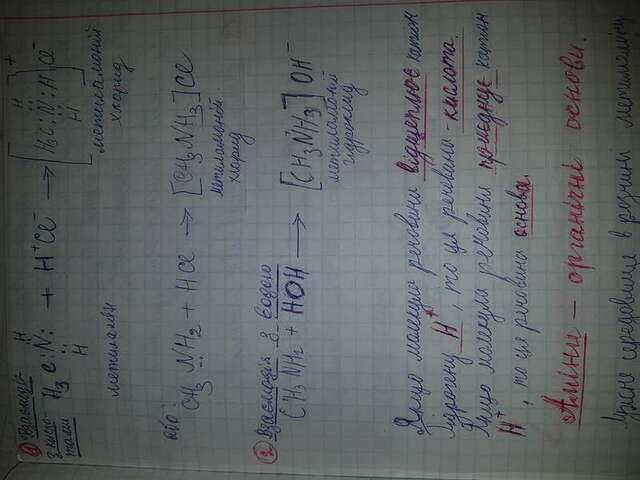 ① Взаємодія
з кисло-
тами
H₃C:N: + H⁺Cl⁻ → [H₃C:N:H]⁺Cl⁻
метиламін
метиламоній
хлорид
або
CH₃NH₂ + HCl → [CH₃NH₃]Cl
метиламоній
хлорид
② Взаємодія з водою
CH₃NH₂ + HOH → [CH₃NH₃]OH⁻
метиламоній
гідроксид
Якщо молекула речовини відщеплює катіон
Гідрогену H⁺, то ця речовина - кислота.
Якщо молекула речовини приєднує катіон
H⁺, то ця речовина основа.
Аміни - органічні основи.
середовище в розчині метиламіну